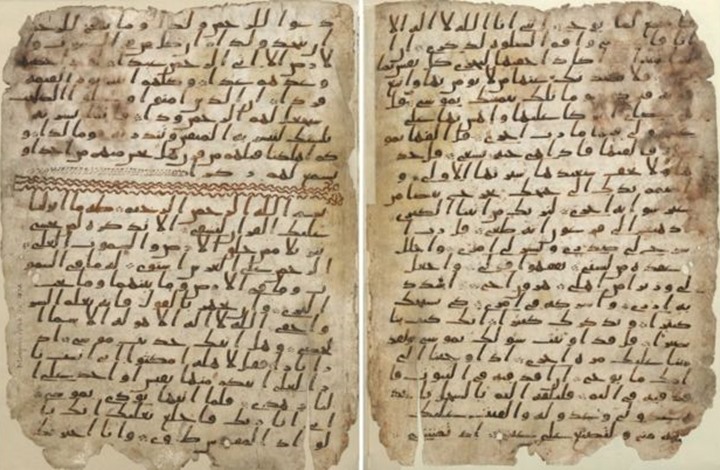 دعوا للرحمن ولدا وما ينبغي للرحمن
ان يتخذ ولدا ان كل من في السموت و
الارض الا اتي الرحمن عبدا لقد احصيهم
وعدهم عدا وكلهم اتيه يوم القيمة
فردا ان الذين امنوا وعملوا الصلحت
سيجعل لهم الرحمن ودا فانما يسرنه
بلسنك لتبشر به المتقين وتنذر به قوما لدا و
كم اهلكنا قبلهم من قرن هل تحس منهم من احد او
تسمع لهم ركزا
بسم الله الرحمن الرحيم طه ما انزلنا
عليك القران لتشقي الا تذكرة لمن يخشي
تنزيلا ممن خلق الارض والسموت العلي
الرحمن علي العرش استوي له ما في السمو
ت وما في الارض وما بينهما وما تحت
الثري وان تجهر بالقول فانه يعلم السر
واخفي الله لا اله الا هو له الاسما ا
لحسني وهل اتيك حديث موسي اذ
را نارا فقل لاهله امكثوا اني انست نا
را لعلي اتيكم منها بقبس او اجد علي ا
لنار هدي فلما اتيها نودي يموسي
اني انا ربك فاخلع نعليك انك با
لواد المقدس طوي وانا اخترتك
فاستمع لما يوحي انني انا الله لا اله الا
انا فاعبدني واقم الصلوة لذكري ان ا
لساعة اتية اكاد اخفيها لتجزي كل نفس بما
تسعي فلا يصدنك عنها من لا يومن بها واتبع
هويه فتردي وما تلك بيمينك يموسي قل
هي عصاي اتوكا عليها واهش بها علي
غنمي ولي فيها مارب اخري قل القها يمو
سي فلقيها فاذا هي حية تسعي قل خذ
ها ولا تخف سنعيدها سيرتها الاولي و
اضمم يدك الي جنحك تخرج بيضا من
غير سو اية اخري لنريك من ايتنا الكبري
اذهب الي فرعون انه طغي قل رب ا
شرح لي صدري ويسر لي امري واحلل
عقدة من لسني يفقهوا قولي واجعل
لي وزيرا من اهلي هرون اخي اشدد
به ازري واشركه في امري كي نسبحك
كثيرا ونذكرك كثيرا انك كنت بنا
بصيرا قل قد اوتيت سولك يموسي ولقد
مننا عليك مرة اخري اذ اوحينا الي
امك ما يوحي ان اقذفيه في التبوت فا
قذفيه في اليم فليلقه اليم بالسحل ياخذه
عدو لي وعدو له والقيت عليك
محبة مني ولتصنع علي عيني اذ تمشي